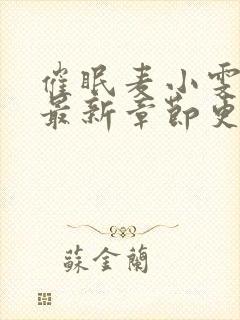 催眠麦小雯
最新章节史
蘇金蘭